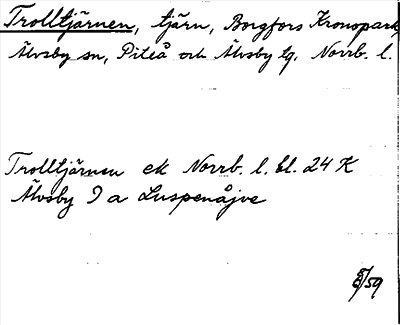 Trolltjärnen, tjärn, Borgfors Kronopark,
Älvsby sn, Piteå och Älvsby tg, Norrb. l.
Trolltjärnen ek Norrb. l. bl. 24 K
Älvsby I a Luspenåjve
8/59